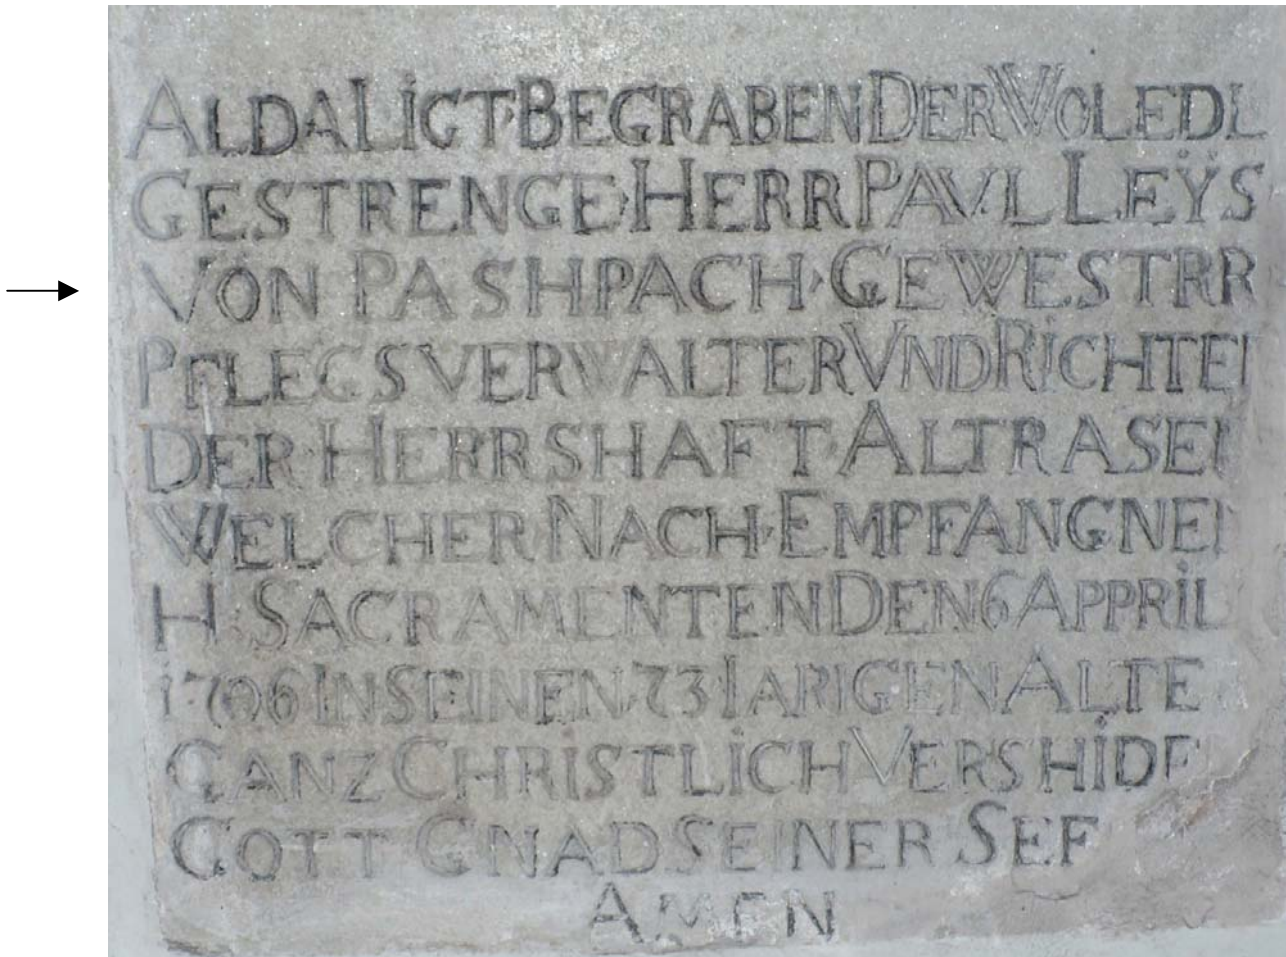 ALDA LIGT BEGRABEN DER WOLEDL
GESTRENGE HERR PAVL LEŸS
VON PASHPACH GEWESTRR
PFLEGSVERWALTER VND RICHTER
DER HERRSHAFT ALTRASEN
WELCHER NACH EMPFANGNEN
H SACRAMENTEN DEN 6 APPRIL
1706 IN SEINEN 73 IARIGEN ALTER
GANZ CHRISTLICH VERSHIDE
GOTT GNAD SEINER SEE
AMEN